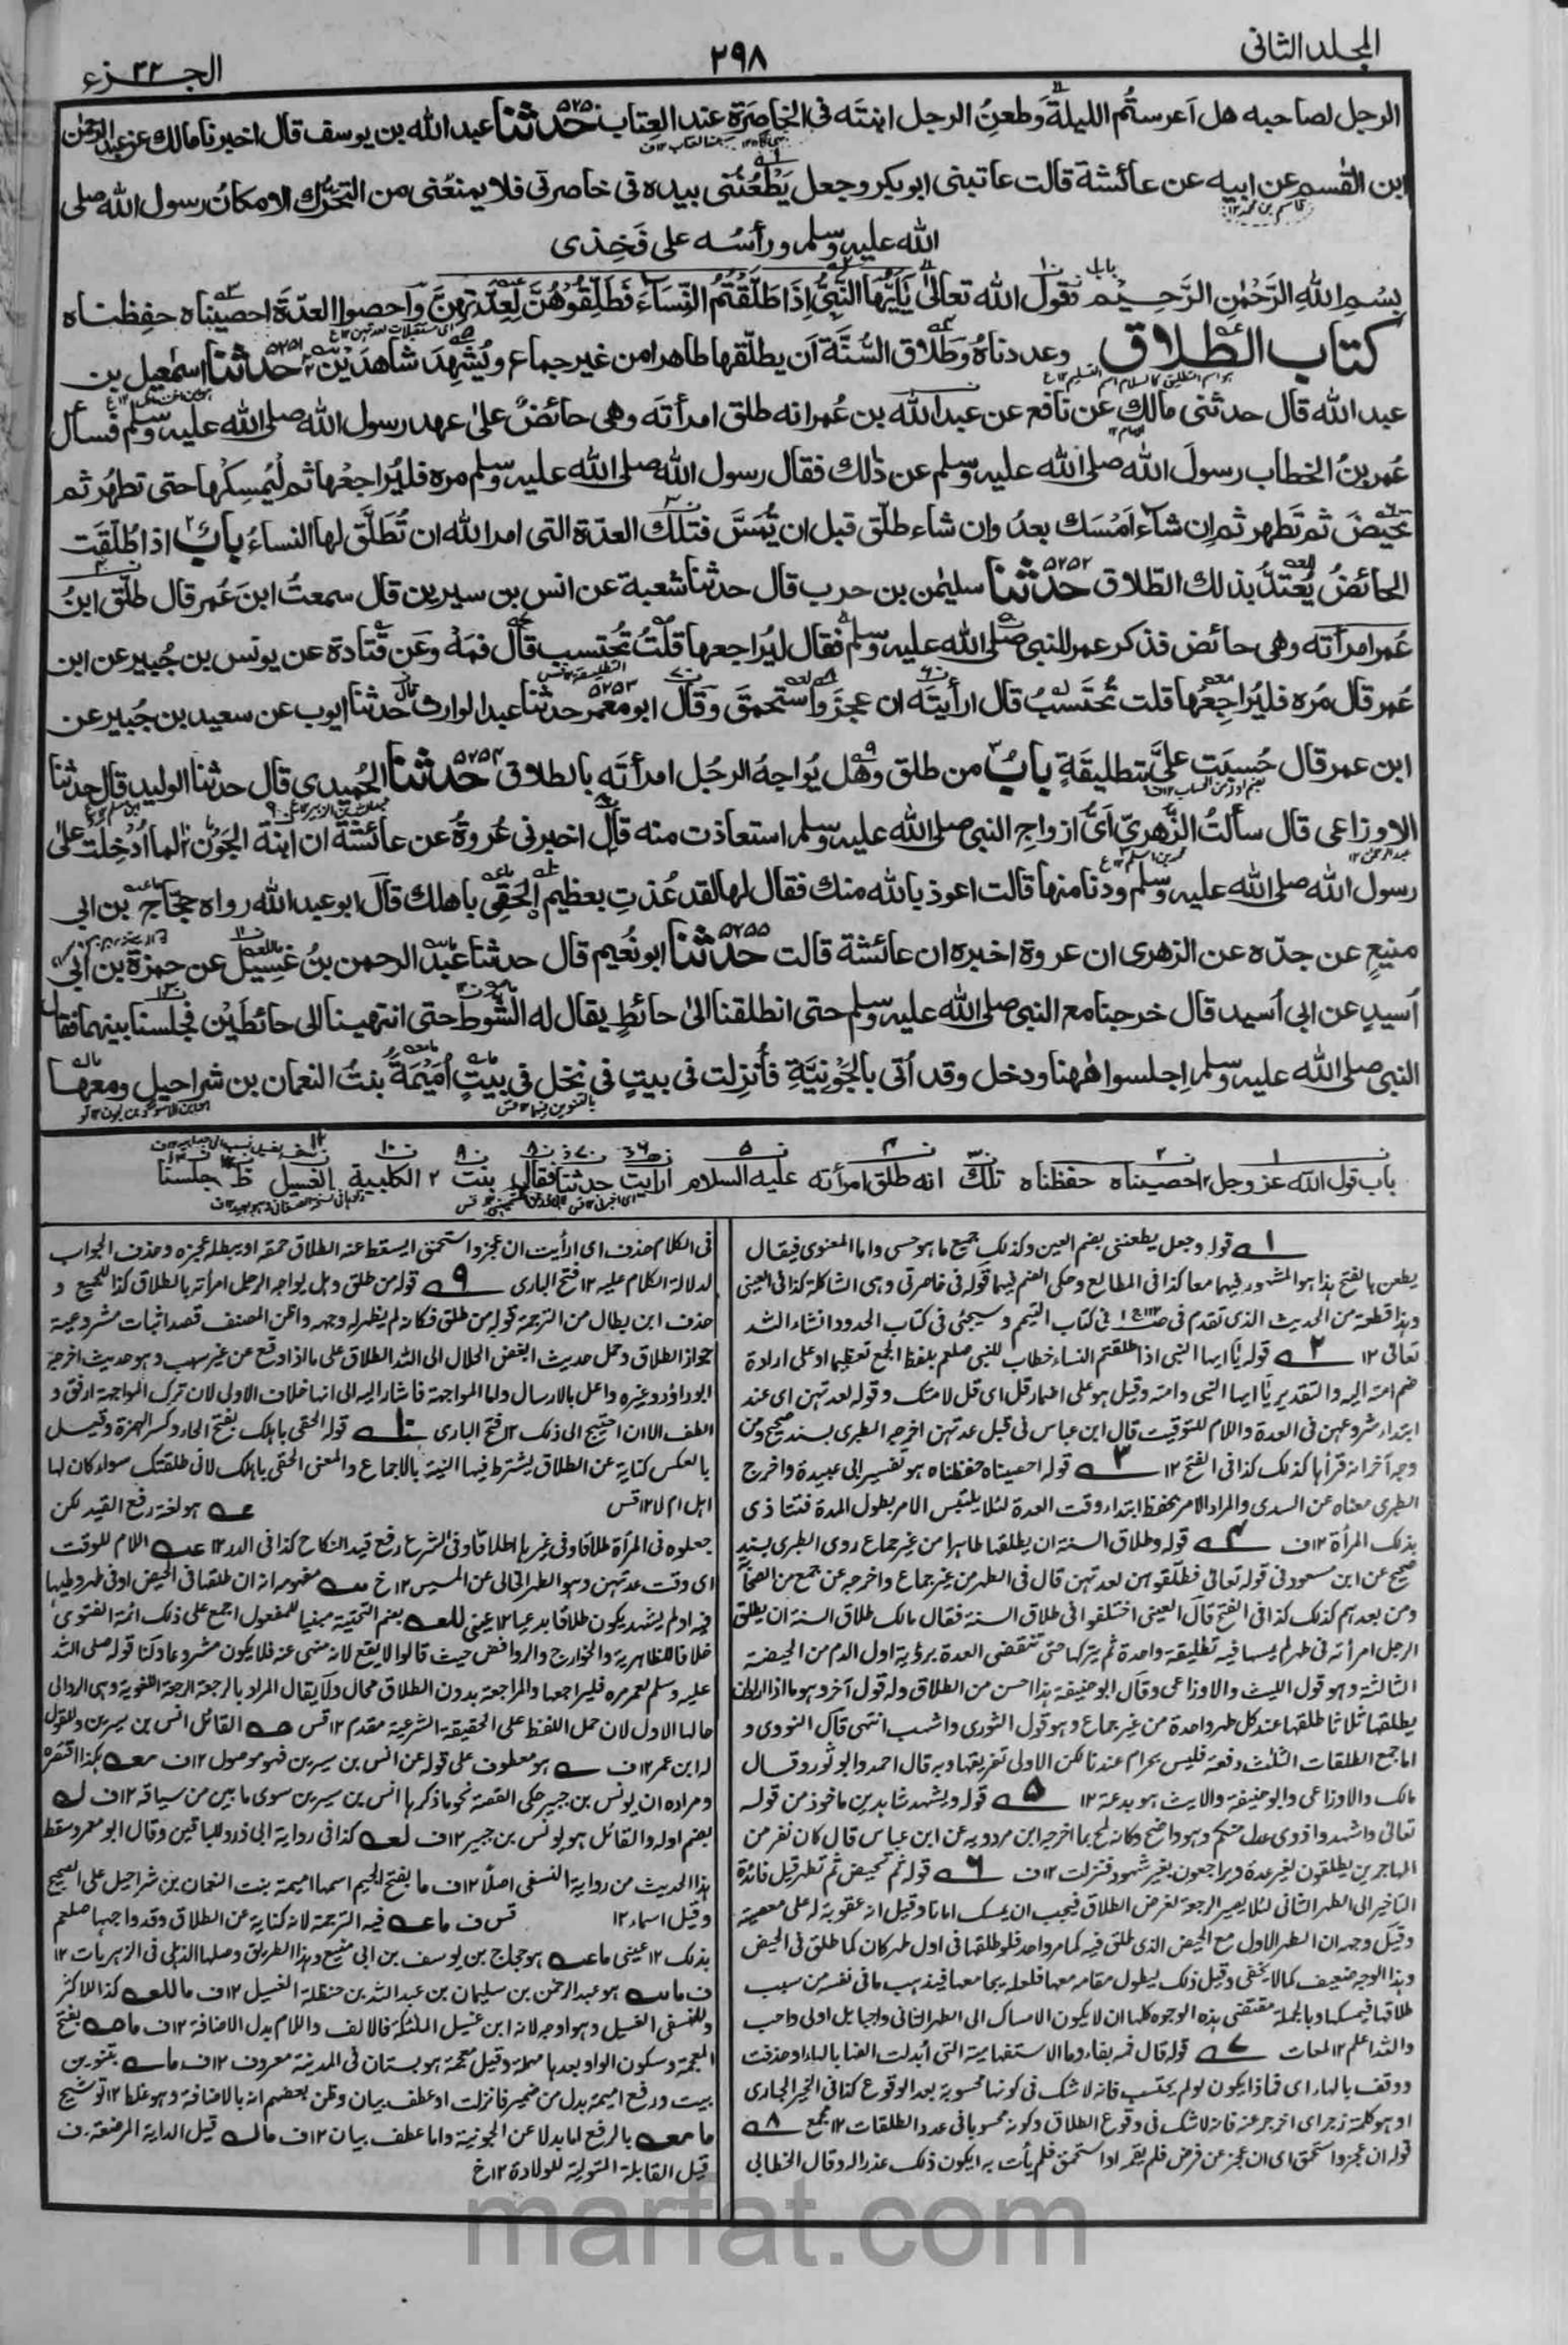 المجلد الثانى
٢٩٨
الجزء ٢٢
الرجل لصاحبه هل اَعرستُم الليلةَ وَطعنِ الرجل ابنتَه فى الخاصَرَة عند العِتاب حدثنا عبد الله بن يوسف قال اخبرنا مالك عن عبد الرحمٰن
ابن القٰسم عن ابيه عن عائشة قالت عاتبنى ابو بكر وجعل يَطْعُنُنى بيده فى خاصرتى فلا يمنعُنى من التحَرُّك الا مكانُ رسول الله صلى
الله عليه وسلم ورأسُه على فَخِذى
بِسْمِ اللهِ الرَّحْمٰنِ الرَّحِيْمِ
كتاب الطلاق
باب وقول الله تعالىٰ يٰاَيُّهَا النَّبِىُّ اِذَا طَلَّقْتُمُ النِّسَاءَ فَطَلِّقُوْهُنَّ لِعِدَّتِهِنَّ وَاَحصوا العدّةَ احصيناه حفِظناه
وعددناهُ وَطَلاق السُّنَّة اَن يطلّقها طاهرا من غير جماع ويُشهِدَ شاهدَيْن ٥٢٥١ حدثنا اسمٰعيل بن
عبد الله قال حدثنى مالك عن نافع عن عبد الله بن عُمر انه طلق امرأتَه وهى حائضٌ علىٰ عهد رسول الله صلى الله عليه وسلم فسأل
عُمر بنُ الخطاب رسولَ الله صلى الله عليه وسلم عن ذٰلك فقال رسول الله صلى الله عليه وسلم مره فليُراجعْها ثم ليُمسِكْها حتى تطهُر ثم
تحيضَ ثم تَطهر ثم اِن شاءَ اَمْسَك بعدُ وان شاء طلّق قبل ان يَّمَسَّ فتلك العدّة التى امر الله ان تُطَلَّق لها النساءُ بابٌ اذا طُلّقَت
الحائضُ يُعتَدُّ بذلك الطلاق ٥٢٥٢ حدثنا سليمٰن بن حرب قال حدثنا شعبة عن انس بن سيرين قال سمعتُ ابنَ عُمر قال طلّق ابنُ
عُمر امرأته وهى حائض فذكر عمر للنبى صلى الله عليه وسلم فقال ليُراجعها قلتُ تُحتسب قال فمَهْ وعَن قَتادة عن يونس بن جُبير عن ابن
عُمر قال مُره فليُراجِعْها قلت تُحتَسَبُ قال ارأيتَه ان عجزَ واستحمقَ وقال ابو معمر ٥٢٥٣ حدثنا عبد الوارث قال حدثنا ايوب عن سعيد بن جُبير عن
ابن عمر قال حُسِبَت علىَّ بتطليقَةٍ بابُ من طلق وهل يُواجهُ الرجُل امرأتَه بالطلاق ٥٢٥٤ حدثنا الحُميدى قال حدثنا الوليد قال حدثنا
الاوزاعى قال سألتُ الزُّهرىَّ اَىُّ ازواجِ النبى صلى الله عليه وسلم استعاذت منه قال اخبرنى عُروةُ عن عائشة ان ابنة الجَوْن لما اُدخِلت علىٰ
رسول الله صلى الله عليه وسلم ودنا منها قالت اعوذ بالله منك فقال لها لقد عُذتِ بعظيمٍ الحَقِى باهلك قال ابو عبد الله رواه حجّاج بن ابى
منيعٍ عن جدّه عن الزهرى ان عروة اخبره ان عائشة قالت ٥٢٥٥ حدثنا ابو نُعيم قال حدثنا عبد الرحمن بنُ غسيل عن حمزة بن ابى
اُسيدٍ عن ابى اُسيد قال خرجنا مع النبى صلى الله عليه وسلم حتى انطلقنا الىٰ حائطٍ يقال له الشّوط حتى انتهينا الى حائطَيْن فجلسنا بينهما فقال
النبى صلى الله عليه وسلم اجلسوا هٰهنا ودخل وقد اُتى بالجَوْنيَّةِ فاُنزِلت فى بيتٍ فى نخل فى بيتٍ اُمَيْمَةُ بنتُ النعمان بن شراحيل ومعها
باب قول الله عز وجل احصيناه حفظناه تلك انه طلق امرأته عليه السلام ارايت حدثنا فقال بنت الكلبية الغسيل جلسنا
١ قوله وجعل يطعننى بضم العين وكذلك جميع ما هو حسى واما المعنوى فيقال
يطعن بالفتح هذا هو المشهور فيهما معا كذا فى المطالع وحكى الضم فيهما قوله فى خاصرتى وهى الشاكلة كذا فى العينى
وهذا قطعة من الحديث الذى تقدم فى كتاب التيمم وسيجئ فى كتاب الحدود انشاء الله
تعالى ١٢ ٢ قوله يا ايها النبى اذا طلقتم النساء خطاب للنبى صلعم بلفظ الجمع تعظيما او على ارادة
ضم امته اليه والتقدير يا ايها النبى وامته وقيل هو على اضمار قل اى قل لامتك وقوله لعدتهن اى عند
ابتداء شروعهن فى العدة واللام للتوقيت قال ابن عباس فى قبل عدتهن اخرجه الطبرى بسند صحيح ومن
وجه آخر انه قرأها كذلك كذا فى الفتح ١٢ ٣ قوله احصيناه حفظناه هو تفسير ابى عبيدة واخرج
الطبرى معناه عن السدى والمراد الامر بحفظ ابتداء وقت العدة لئلا يلتبس الامر بطول المدة فتتاذى
بذلك المرأة ١٢ف ٤ قوله وطلاق السنة ان يطلقها طاهرا من غير جماع روى الطبرى بسند
صحيح عن ابن مسعود فى قوله تعالى فطلقوهن لعدتهن قال فى الطهر من غير جماع واخرجه عن جمع من الصحابة
ومن بعدهم كذلك كذا فى الفتح قال العينى اختلفوا فى طلاق السنة فقال مالك طلاق السنة ان يطلق
الرجل امرأته فى طهر لم يمسها فيه تطليقة واحدة ثم يتركها حتى تنقضى العدة برؤية اول الدم من الحيضة
الثالثة وهو قول الليث والاوزاعى وقال ابو حنيفة هذا احسن من الطلاق وله قول آخر وهو ما اذا اراد ان
يطلقها ثلاثا طلقها عند كل طهر واحدة من غير جماع وهو قول الثورى واشهب انتهى قال النووى و
اما جمع الطلقات الثلث دفعة فليس بحرام عندنا لكن الاولى تفريقها وبه قال احمد وابو ثور وقال
مالك والاوزاعى وابو حنيفة والليث هو بدعة ١٢ ٥ قوله ويشهد شاهدين ماخوذ من قوله
تعالى واشهدوا ذوى عدل منكم وهو واضح وكانه لمح بما اخرجه ابن مردويه عن ابن عباس قال كان نفر من
المهاجرين يطلقون لغير عدة ويراجعون بغير شهود فنزلت ١٢ف ٦ قوله ثم تحيض ثم تطهر قيل فائدة
التاخير الى الطهر الثانى لئلا يصير الرجعة لغرض الطلاق فيجب ان يمسك امانا وقيل انه عقوبة له على معصية
وقيل وجهه ان الطهر الاول مع الحيض الذى طلق فيه كامر واحد فلو طلقها فى اول طهر كان كما طلق فى الحيض
وهذا الوجه ضعيف كما لا يخفى وقيل ذلك ليطول مقامه معها فلعله يجامعها فيذهب ما فى نفسه من سبب
طلاقها فيمسكها وبالجملة مقتضى هذه الوجوه كلها ان لا يكون الامساك الى الطهر الثانى واجبا بل اولى واحب
والله اعلم ١٢ لمعات ٧ قوله قال فمه بفاء وما الاستفهامية التى اُبدلت الفها بالهاء او حذفت
ووقف بالهاء اى فماذا يكون لو لم يحتسب فانه لا شك فى كونها محسوبة بعد الوقوع كذا فى الخير الجارى
او هو كلمة زجر اى انزجر عنه فانه لا شك فى وقوع الطلاق وكونه محسوبا فى عدد الطلقات ١٢ مجمع ٨
قوله ان عجز واستحمق اى ان عجز عن فرض فلم يقمه او استحمق فلم يأت به ايكون ذلك عذرا له وقال الخطابى
فى الكلام حذف اى ارأيت ان عجز واستحمق ايسقط عنه الطلاق حمقه او يبطله عجزه وحذف الجواب
لدلالة الكلام عليه ١٢ فتح البارى ٩ قوله من طلق وهل يواجه الرجل امرأته بالطلاق كذا للجميع و
حذف ابن بطال من الترجمة قوله من طلق فكانه لم يظهر له وجهه واظن المصنف قصد اثبات مشروعية
جواز الطلاق وحمل حديث ابغض الحلال الى الله الطلاق على ما اذا وقع عن غير سبب وهو حديث اخرجه
ابو داؤد وغيره واعل بالارسال واما المواجهة فاشار اليه الى انها خلاف الاولى لان ترك المواجهة ارفق و
الطف الا ان احتيج الى ذلك ١٢ فتح البارى ١٠ قوله الحقى باهلك بفتح الحاء وكسر الهمزة وقيل
بالعكس كناية عن الطلاق يشترط فيها النية بالاجماع والمعنى الحقى باهلك لانى طلقتك سواء كان لها
اهل ام لا ١٢ قس عه هو لغة رفع القيد لكن
جعلوه فى المرأة طلاقا وفى غيرها اطلاقا وفى الشرع رفع قيد النكاح كذا فى الدر ١٢ عه اللام للوقت
اى وقت عدتهن وهو الطهر الخالى عن المسيس ١٢ خ سه مفهومه انه ان طلقها فى الحيض او فى طهر وطيها
فيه او لم يشهد يكون طلاقا بدعيا ١٢ عينى للعه بضم التحتية مبنيا للمفعول اجمع على ذلك ائمة الفتوى
خلافا للظاهرية والخوارج والروافض حيث قالوا لا يقع لانه منهى عنه فلا يكون مشروعا ولنا قوله صلى الله
عليه وسلم لعمر مره فليراجعها والمراجعة بدون الطلاق محال ولا يقال المراد بالرجعة الرجعة اللغوية وهى الرد الى
حالها الاول لان حمل اللفظ على الحقيقة الشرعية مقدم ١٢ قس صه القائل انس بن سيرين والمقول
له ابن عمر ١٢ف سه هو معطوف على قوله عن انس بن سيرين فهو موصول ١٢ف معه هكذا اختصره
ومراده ان يونس بن جبير حكى القصة نحو ما ذكرها انس بن سيرين سوى ما بين من سياقه ١٢ف له
بضم اوله والقائل هو يونس بن جبير ١٢ف لعه كذا فى رواية ابى ذر وللباقين وقال ابو معمر وسقط
هذا الحديث من رواية النسفى اصلا ١٢ف ما بفتح الجيم اسمها اميمة بنت النعمان بن شراحيل على الصحيح
وقيل اسماء ١٢ قس ف ماعه فيه الترجمة لانه كناية عن الطلاق وقد واجهها صلعم
بذلك ١٢ عينى ماعه هو حجاج بن يوسف بن ابى منيع وهذا الطريق وصلها الذهلى فى الزهريات ١٢
ف ماسه هو عبد الرحمن بن سليمان بن عبد الله بن حنظلة الغسيل ١٢ف ماللعه كذا للاكثر
وللنسفى الغسيل وهو اوجه لانه ابن غسيل الملئكة فالالف واللام بدل الاضافة ١٢ف ماصه بفتح
المعجمة وسكون الواو بعدها مهملة وقيل معجمة هو بستان فى المدينة معروف ١٢ف ماسه بتنوين
بيت ورفع اميمة بدل من ضمير فانزلت او عطف بيان وظن بعضهم انه بالاضافة وهو غلط ١٢ توشيح
مامعه بالرفع اما بدلا عن الجونية واما عطف بيان ١٢ف ماله قيل الداية المرضعة ف
قيل القابلة المتولية للولادة ١٢ خ
marfat.com